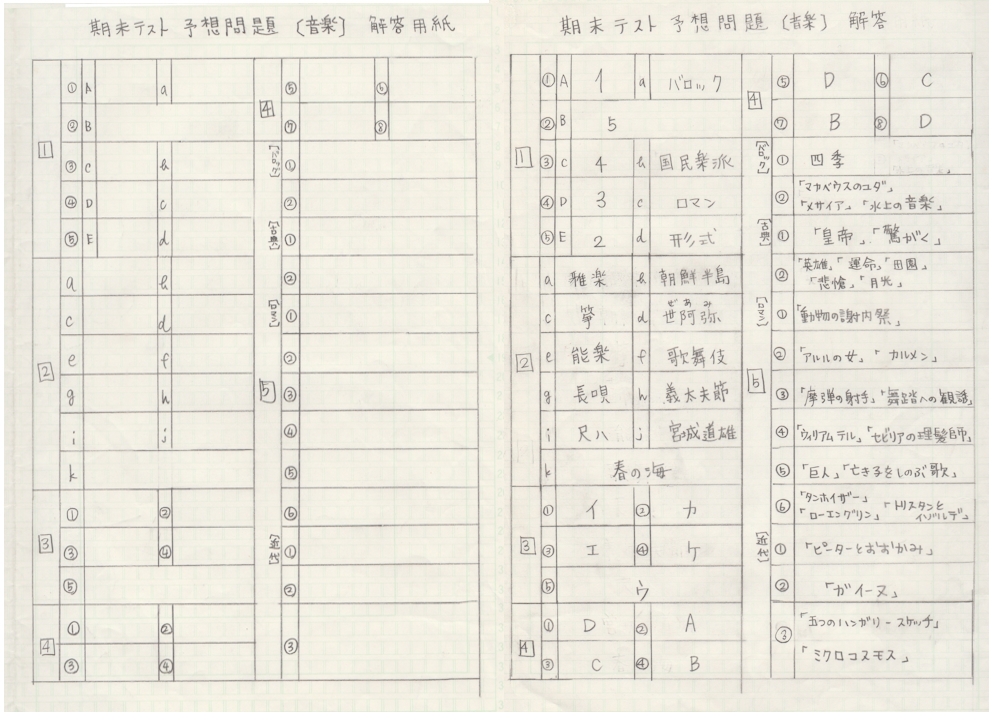 期末テスト 予想問題 〔音楽〕 解答用紙
1
① A a
② B
③ C b
④ D c
⑤ E d
2
a b
c d
e f
g h
i j
k
3
① ②
③ ④
⑤
4
① ②
③ ④
4
⑤ ⑥
⑦ ⑧
5
[バロック]
①
②
[古典]
①
②
[ロマン]
①
②
③
④
⑤
⑥
[近代]
①
②
③
期末テスト 予想問題 〔音楽〕 解答
1
① A 1 a バロック
② B 5
③ C 4 b 国民楽派
④ D 3 c ロマン
⑤ E 2 d 形式
2
a 雅楽 b 朝鮮半島
c 箏 d 世阿弥
ぜあみ
e 能楽 f 歌舞伎
g 長唄 h 義太夫節
i 尺八 j 宮城道雄
k 春の海
3
① イ ② カ
③ エ ④ ケ
⑤ ウ
4
① D ② A
③ C ④ B
4
⑤ D ⑥ C
⑦ B ⑧ D
5
[バロック]
① 四季
② 「マカベウスのユダ」
「メサイア」「水上の音楽」
[古典]
① 「皇帝」「驚がく」
② 「英雄」「運命」「田園」
「悲愴」「月光」
[ロマン]
① 「動物の謝肉祭」
② 「アルルの女」「カルメン」
③ 「魔弾の射手」「舞踏への観誘」
④ 「ウィリアムテル」「セビリアの理髪師」
⑤ 「巨人」「亡き子をしのぶ歌」
⑥ 「タンホイザー」
「ローエングリン」「トリスタンと
イゾルデ」
[近代]
① 「ピーターとおおかみ」
② 「ガイーヌ」
③ 「五つのハンガリースケッチ」
「ミクロコスモス」